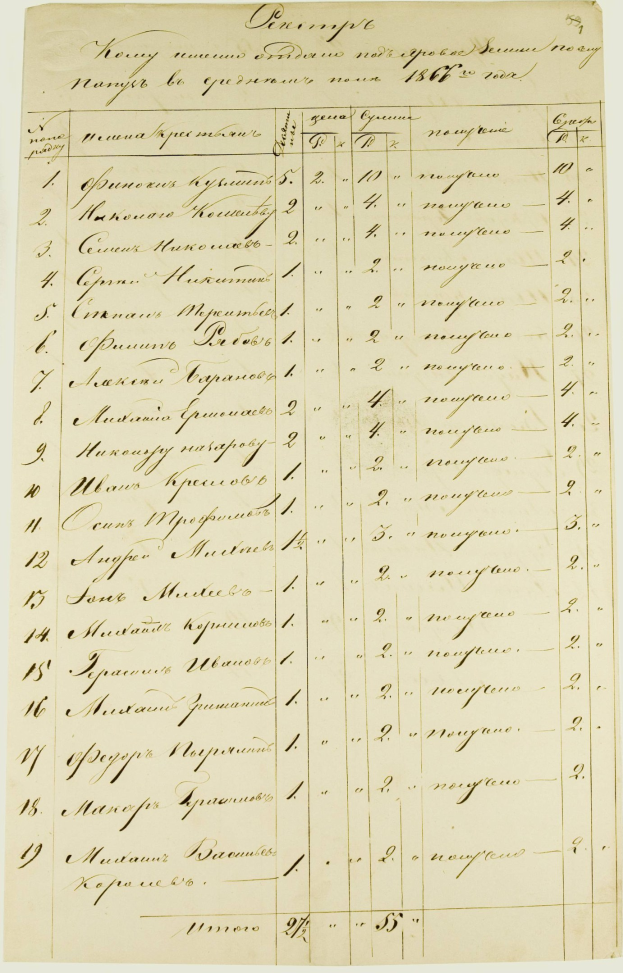 Реэстръ
Кому именно отдано подъ яровое Земли
въ среднемъ поле 1866го года.
№ поря рядку имена Крестьянъ цена Сумма получено
Р к Р к Р. к
1. Кузминъ 5. 2. " 10 " получено — 10 "
2. Николаю 2 " " 4. " получено — 4. "
3. Семенъ Николаевъ — 2. " " 4. " получено — 4. "
4. Сергей Никитинъ 1. " " 2. " получено — 2. "
5. Степанъ Терентьевъ 1. " " 2 " получено — 2. "
6. Филипъ Рябовъ 1. " " 2 " получено — 2. "
7. Алексей Барановъ 1. " " 2 " получено — 2. "
8. Михайла Ермолаевъ 2 " " 4. " получено — 4. "
9. назарову — 2 " " 4. " получено — 4. "
10 Иванъ 1. " " 2. " получено — 2. "
11 Осипъ Трофимовъ 1. " " 2. " получено — 2. "
12 Андрей Михеевъ 1½ " " 3. " получено. — 3. "
13 Михеевъ — 1. " " 2. " получено. — 2. "
14. Михайлъ Корниловъ 1. " " 2. " получено — 2. "
15 Герасимъ Ивановъ 1. " " 2. " получено. — 2. "
16 Михайла 1. " " 2. " получено — 2. "
17 Федоръ 1. " " 2. " получено. — 2. "
18. Макаръ Герасимовъ 1. " " 2. " получено — 2.
19 Михаилъ Васильевъ 1. " " 2. " получено — 2. "
Королевъ. —
Итого 27½ " " 55 "